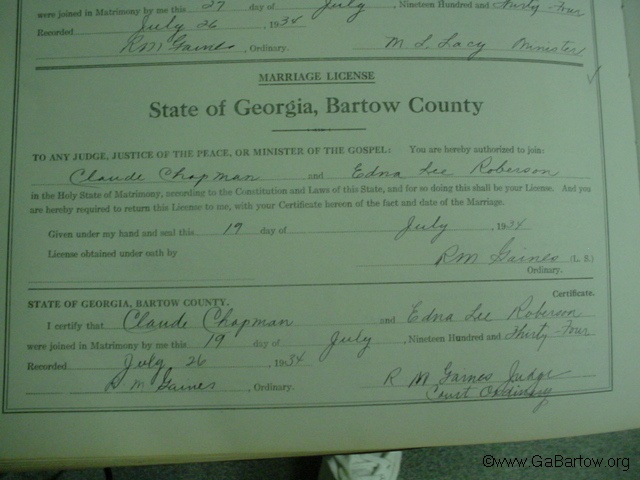 were joined in Matrimony by me this 27 day of July, Nineteen Hundred and Thirty Four
Recorded July 26 , 1934
R M Gaines , Ordinary. M. L. Lacy Minister
MARRIAGE LICENSE
State of Georgia, Bartow County
TO ANY JUDGE, JUSTICE OF THE PEACE, OR MINISTER OF THE GOSPEL: You are hereby authorized to join:
Claude Chapman and Edna Lee Roberson
in the Holy State of Matrimony, according to the Constitution and Laws of this State, and for so doing this shall be your License. And you
are hereby required to return this License to me, with your Certificate hereon of the fact and date of the Marriage.
Given under my hand and seal this 19 day of July , 1934
License obtained under oath by R M Gaines (L. S.)
Ordinary.
Certificate.
STATE OF GEORGIA, BARTOW COUNTY.
I certify that Claude Chapman and Edna Lee Roberson
were joined in Matrimony by me this 19 day of July , Nineteen Hundred and Thirty Four
Recorded July 26 , 1934
R M Gaines , Ordinary. R M Gaines Judge
Court Ordinary
©www.GaBartow.org